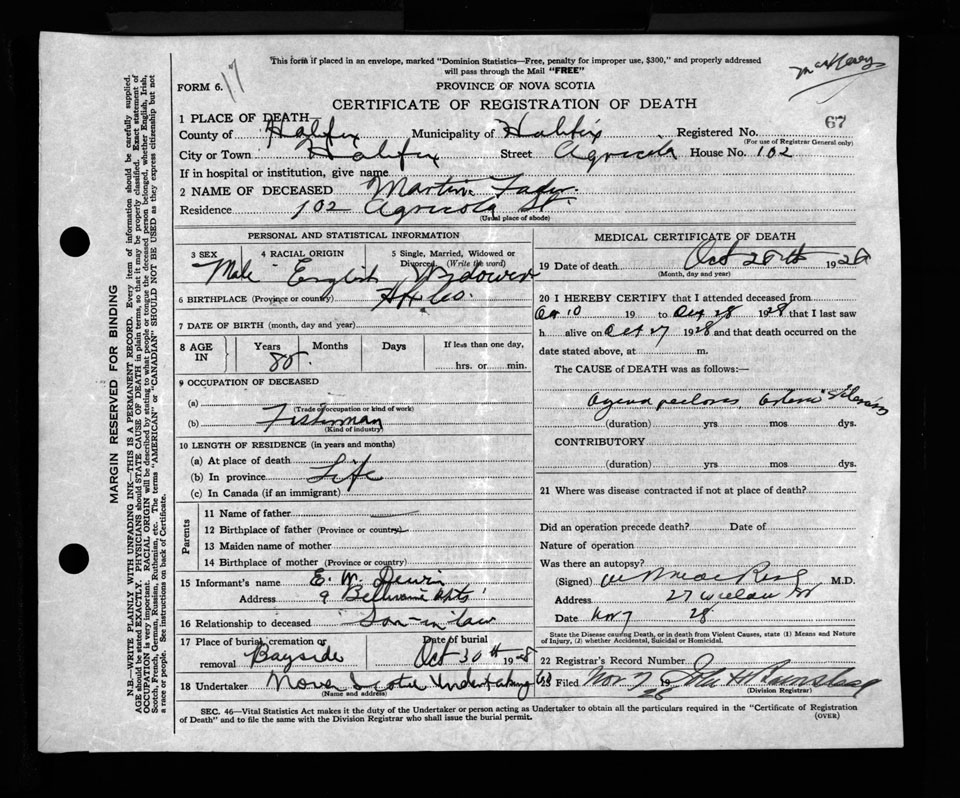 This form if placed in an envelope, marked "Dominion Statistics—Free, penalty for improper use, $300," and properly addressed
will pass through the Mail "FREE"
FORM 6.
17
PROVINCE OF NOVA SCOTIA
CERTIFICATE OF REGISTRATION OF DEATH
1 PLACE OF DEATH
67
County of Halifax Municipality of Halifax Registered No.
(For use of Registrar General only)
City or Town Halifax Street Agricola House No. 102
If in hospital or institution, give name
2 NAME OF DECEASED Martin
Residence 102 Agricola St.
(Usual place of abode)
PERSONAL AND STATISTICAL INFORMATION
3 SEX 4 RACIAL ORIGIN 5 Single, Married, Widowed or Divorced (Write the word)
Male English Widower
6 BIRTHPLACE (Province or country) Hfx Co.
7 DATE OF BIRTH (month, day and year)
8 AGE IN Years Months Days If less than one day,
80 hrs. or min.
9 OCCUPATION OF DECEASED
(a)
(Trade or occupation or kind of work)
(b) Fisherman
(Kind of industry)
10 LENGTH OF RESIDENCE (in years and months)
(a) At place of death
(b) In province Life
(c) In Canada (if an immigrant)
Parents
11 Name of father
12 Birthplace of father (Province or country)
13 Maiden name of mother
14 Birthplace of mother (Province or country)
15 Informant's name E. W.
Address 9 Apts
16 Relationship to deceased Son-in-law
17 Place of burial, cremation or removal Bayside Date of burial Oct 30th 1928
18 Undertaker Nova Scotia Undertaking Co
(Name and address)
MEDICAL CERTIFICATE OF DEATH
19 Date of death Oct 28th 1928
(Month, day and year)
20 I HEREBY CERTIFY that I attended deceased from
10 19 to Oct 28 1928 that I last saw
h alive on Oct 27 1928 and that death occurred on the
date stated above, at m.
The CAUSE of DEATH was as follows:—
pectoris,
(duration) yrs mos dys.
CONTRIBUTORY
(duration) yrs. mos. dys.
21 Where was disease contracted if not at place of death?
Did an operation precede death? Date of
Nature of operation
Was there an autopsy?
(Signed) M.D.
Address 27
Date Nov 7 28
State the Disease causing Death, or in death from Violent Causes, state (1) Means and Nature
of Injury, (2) whether Accidental, Suicidal or Homicidal.
22 Registrar's Record Number
Filed Nov 7 1928 John H
(Division Registrar)
SEC. 46—Vital Statistics Act makes it the duty of the Undertaker or person acting as Undertaker to obtain all the particulars required in the "Certificate of Registration
of Death" and to file the same with the Division Registrar who shall issue the burial permit.
(OVER)
MARGIN RESERVED FOR BINDING
N.B.—WRITE PLAINLY WITH UNFADING INK—THIS IS A PERMANENT RECORD. Every item of information should be carefully supplied.
AGE should be stated EXACTLY. PHYSICIANS should STATE CAUSE OF DEATH in plain terms, so that it may be properly classified. Exact statement of
OCCUPATION is very important. RACIAL ORIGIN will be described by stating to what people or tongue the deceased person belonged, whether English, Irish,
Scotch, French, German, Russian, Ruthenian, etc. The terms "AMERICAN" or "CANADIAN" SHOULD NOT BE USED as they express citizenship but not
a race or people. See instructions on back of Certificate.